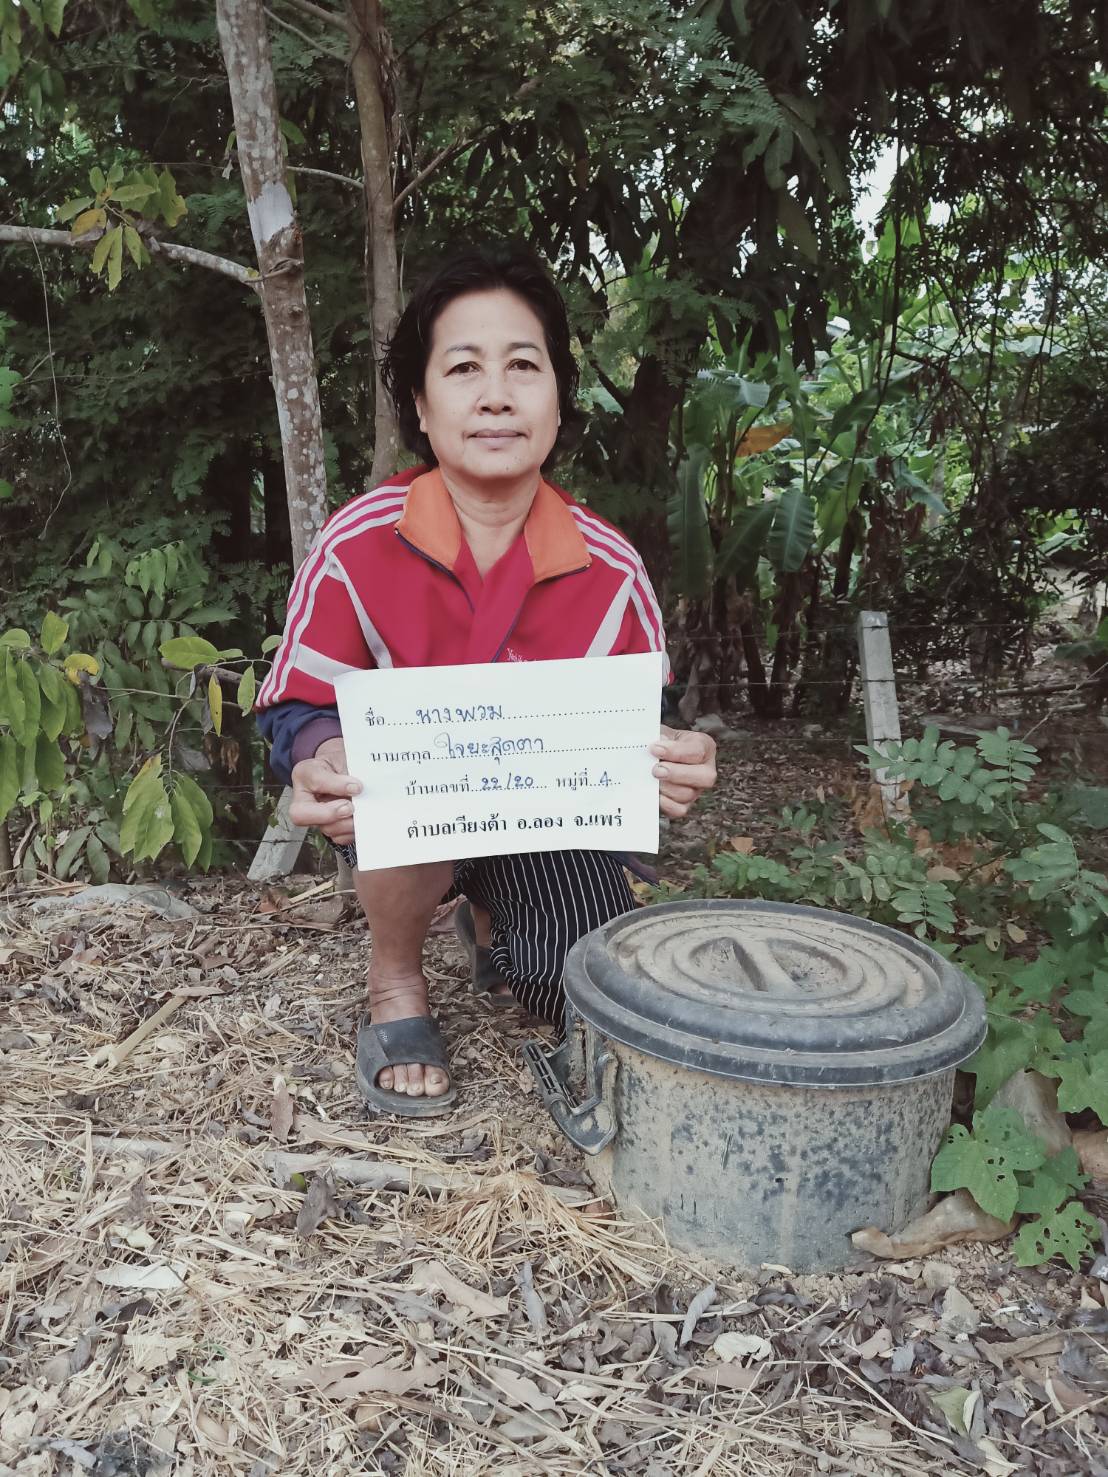 ชื่อ......นางพวม..........................
นามสกุล...ใจยะสุดตา......................
บ้านเลขที่..22/20... หมู่ที่..4...
ตำบลเวียงต้า อ.ลอง จ.แพร่